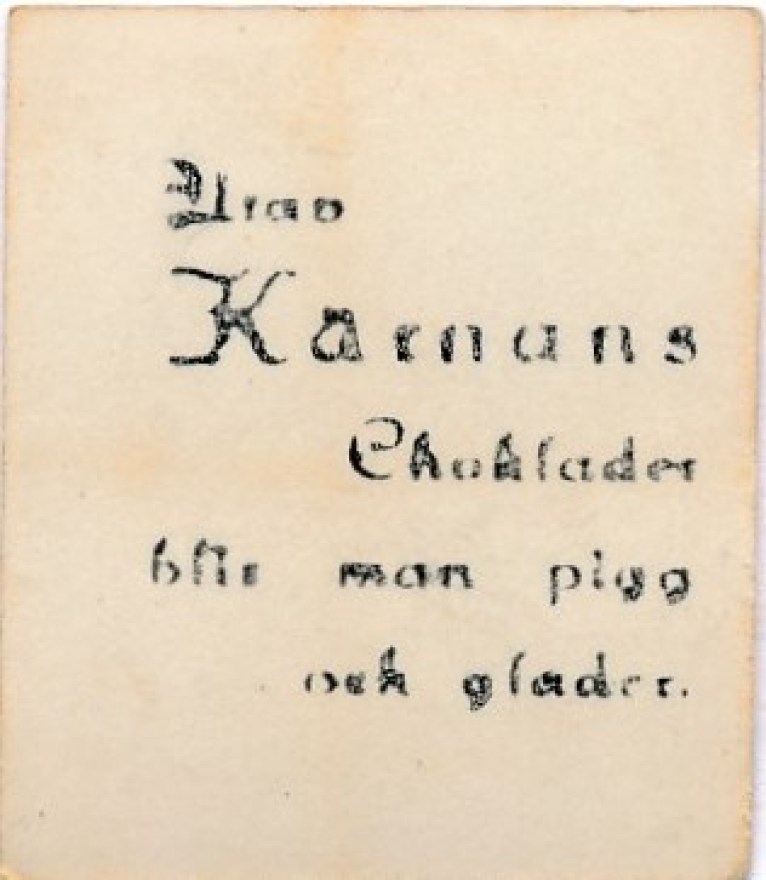 Utav
Kärnans
Choklader
blir man pigg
och glader.